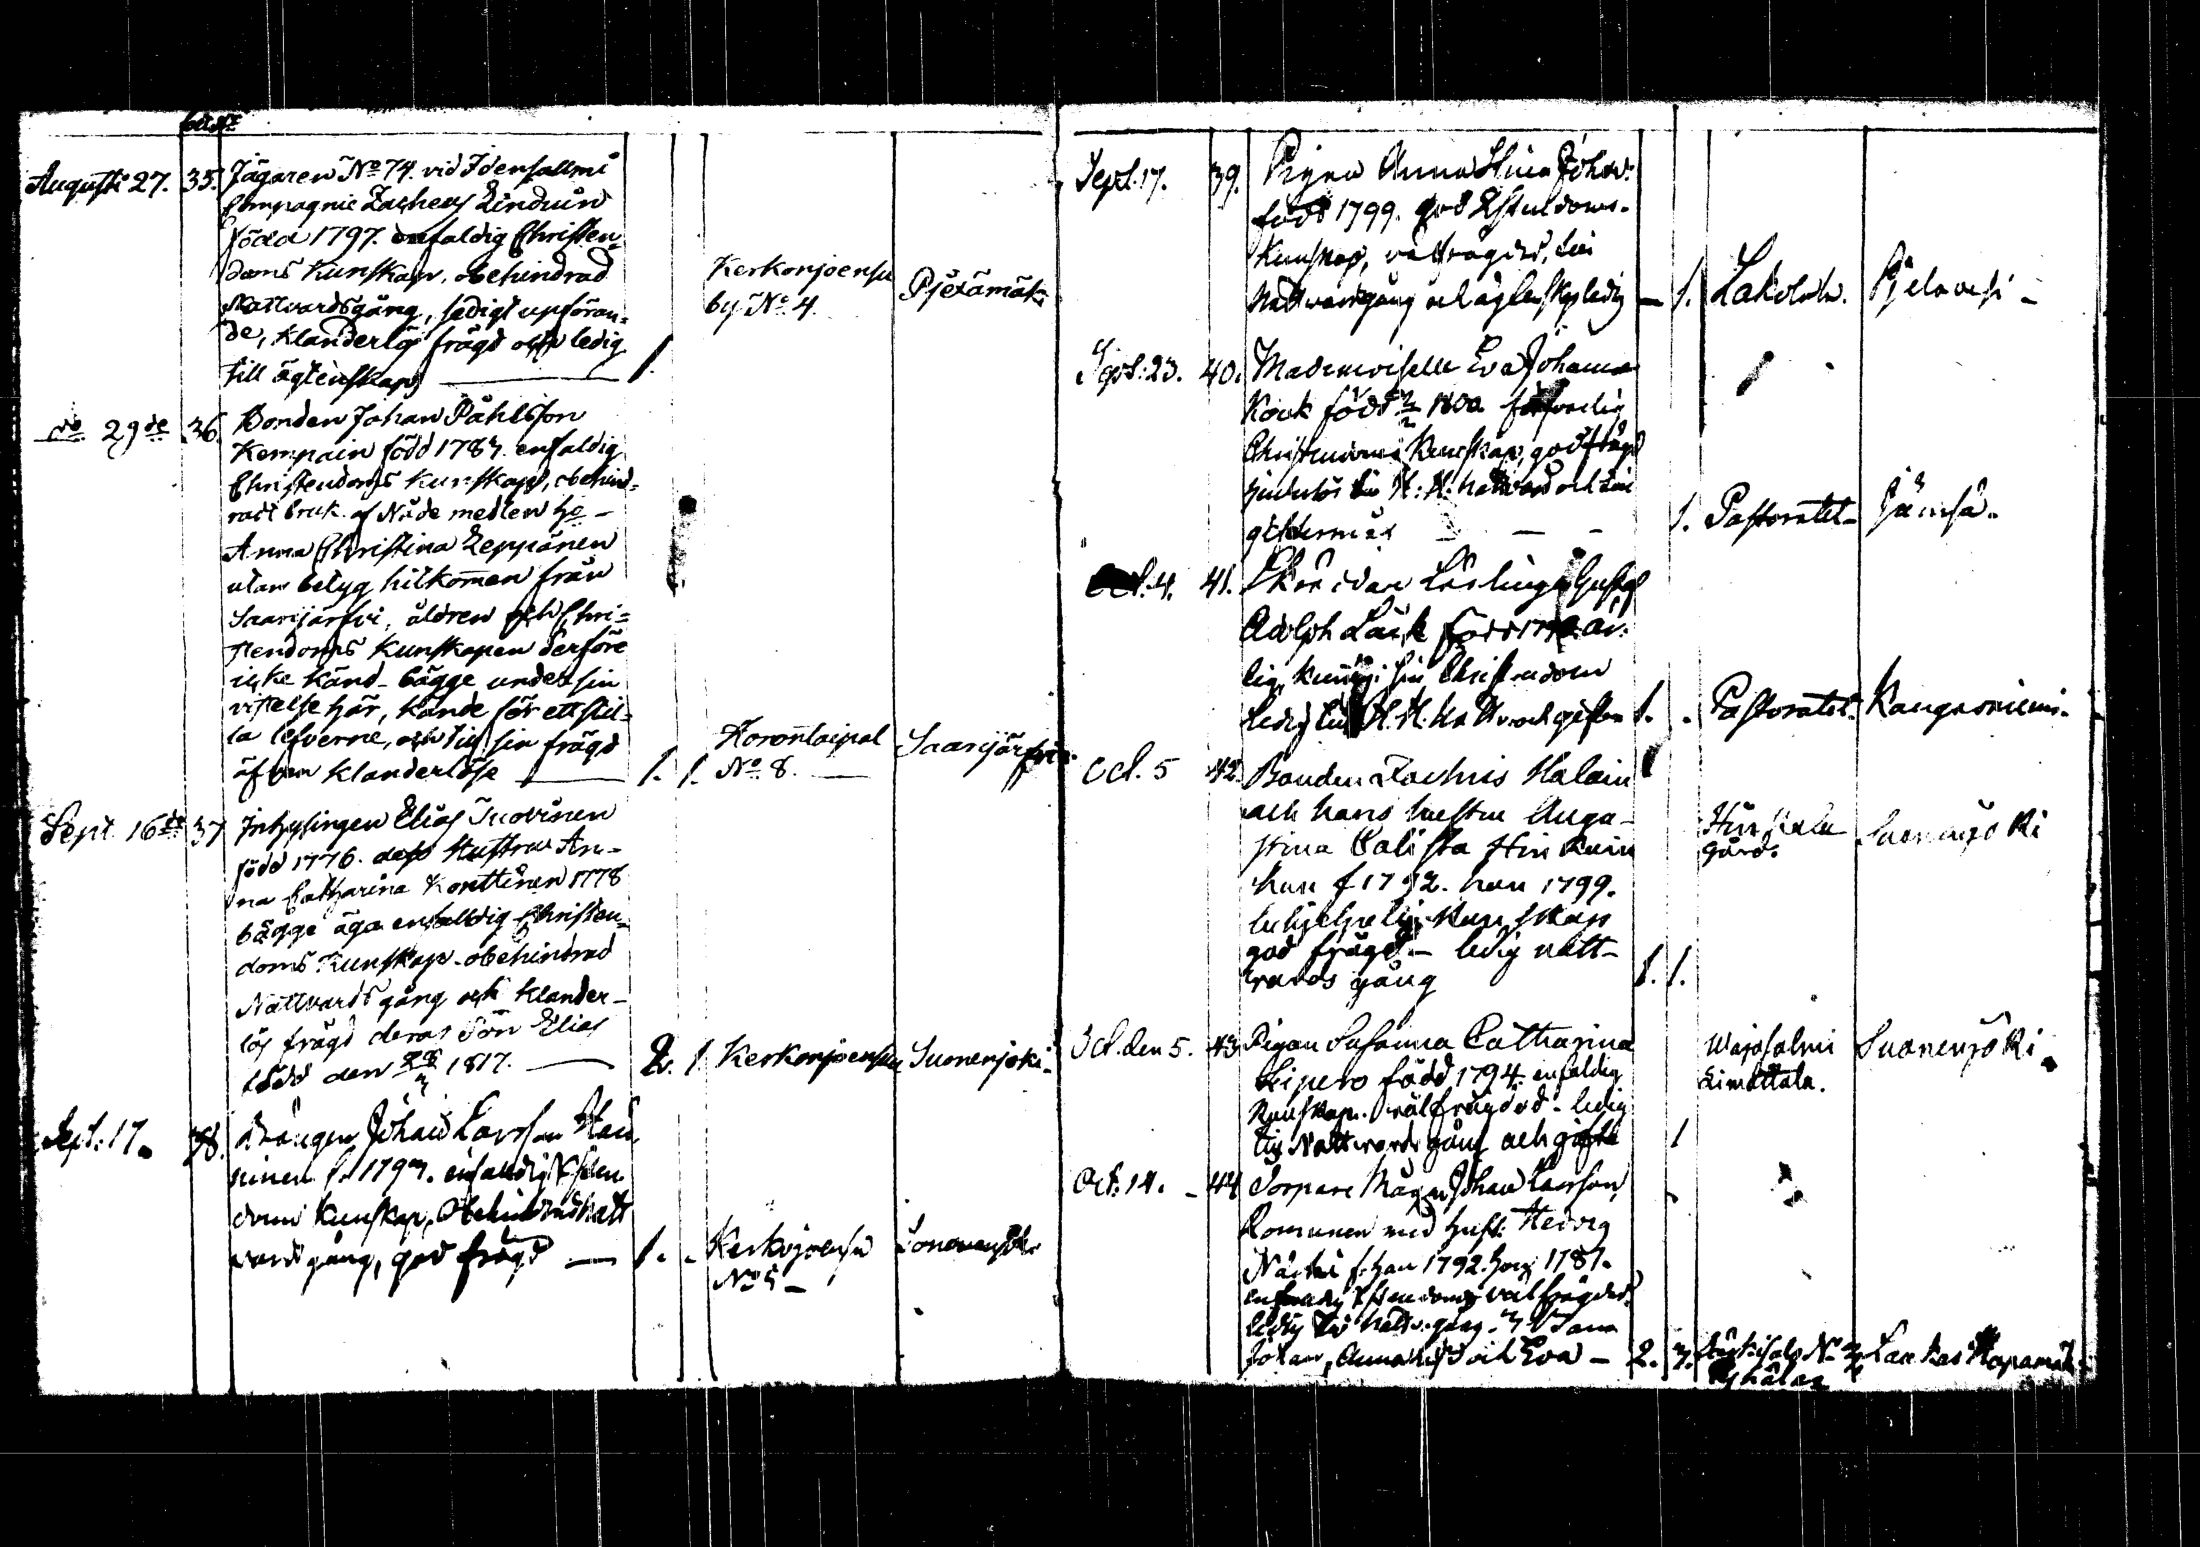 Augusti 27. 35. Jägaren No 74. vid Idensallmi
Compagnie Zacheus Lindrun
född 1797. enfaldig Christen-
doms Kunskap, obehindrad
Nattvardsgång, sedigt upföran-
de, klanderlös frägd och ledig
till ägtenskap 1.
Kerkonjoensu
by No 4.
Pjexämäki
do 29de 36. Bonden Johan Påhlsson
Kempain född 1783. enfaldig
Christendoms kunskap, obehind-
radt bruk af Nådemedlen
Anna Christina Leppänen
utan betyg hitkommen från
Saarijärfvi, åldren och Chri-
stendoms Kunskapen derföre
icke känd - bägge under sin
vistelse här, kände för ett stil-
la lefverne, och till sin frägd
äfven klanderlöse 1. 1.
Koronlaipal
No 8.
Saarijärfvi.
Sept. 16de 37 Inhysingen Elias Tuovinen
född 1776. dess Hustru An-
na Catharina Konttinen 1778
bägge äga enfaldig Christen-
doms Kunskap - obehindrad
Nattvards gång och klander-
lös frägd deras Son Elias
född den 28/3 1817. 2. 1. Kerkonjoensu Suonenjoki
Sept: 17. 38. Drängen Johan Larsson
ninen f. 1793. enfaldig
doms kunskap, obehindrad natt
vardsgång, god frägd 1. Kerkojoensu
No 5
Sept. 17. 39. Pigan Anna Stina Johan:
född 1799. god Christendoms-
kunskap, välfrägdad, till
Nattvardsgång och ägtenskap ledig 1. Pjelavesi
Sept: 23. 40. Mademoiselle Eva Johanna
Kock född 1800. försvarlig
Christendoms kunskap, god frägd
hinderlös till H: H: nattvard och till
giftermål 1. Pastoratet Jämsä.
Oct. 4. 41. Lärling Gustaf
Adolph
lig kunnig i sin Christendom
ledig till H. H. Nattv. och giften 1. Pastoratet. Kangasniemi.
Oct. 5 42. Bonden Zachris Halain
och hans hustru Augu-
stina Calista Hinkain
han f 1792. hon 1799.
behjelpelig kunskap
god frägd - ledig natt-
vards gång 1. 1.
gård.
Suonenjoki
Oct. den 5. 43. Pigan Susanna Catharina
Leipero född 1794. enfaldig
kunskap. välfrägdad - ledig
till Nattvards gång och gifte 1
Wajasalmi
Limattala.
Suonenjoki.
Oct. 14. 44. Torpare Mågen Johan Larsson
Romunen med hust. Hedvig
f. han 1792. hon 1781.
enfaldig Christendom välfrägdad.
ledig till Nattv. gång. 3
Johan, Anna och Eva 2. 3. No 3